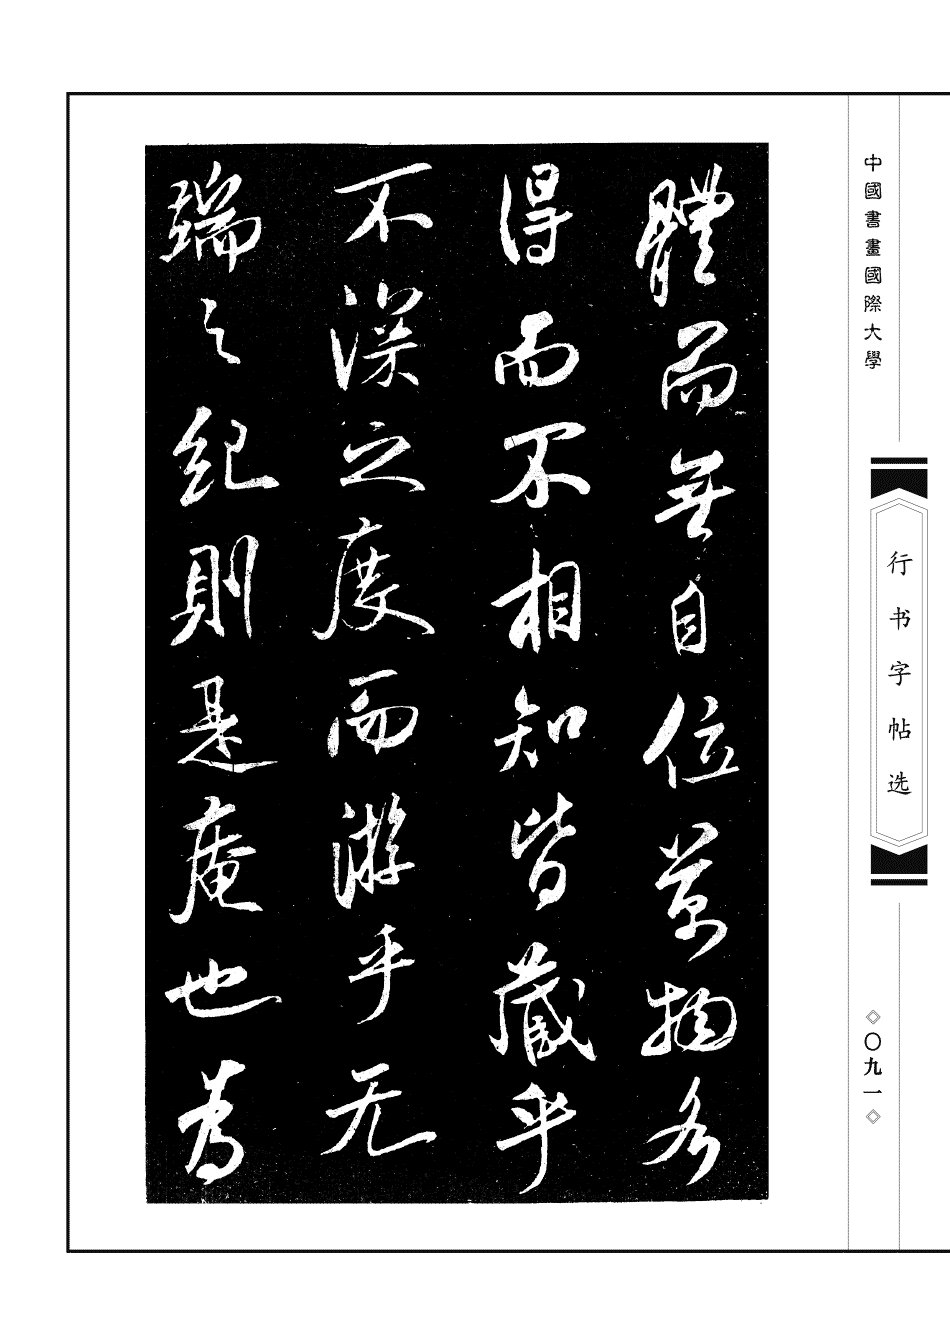 體而無自位萬物各
得而不相知皆藏乎
不深之度而游乎无
端之紀則是庵也為
中國書畫國際大學
行书字帖选
〇九一